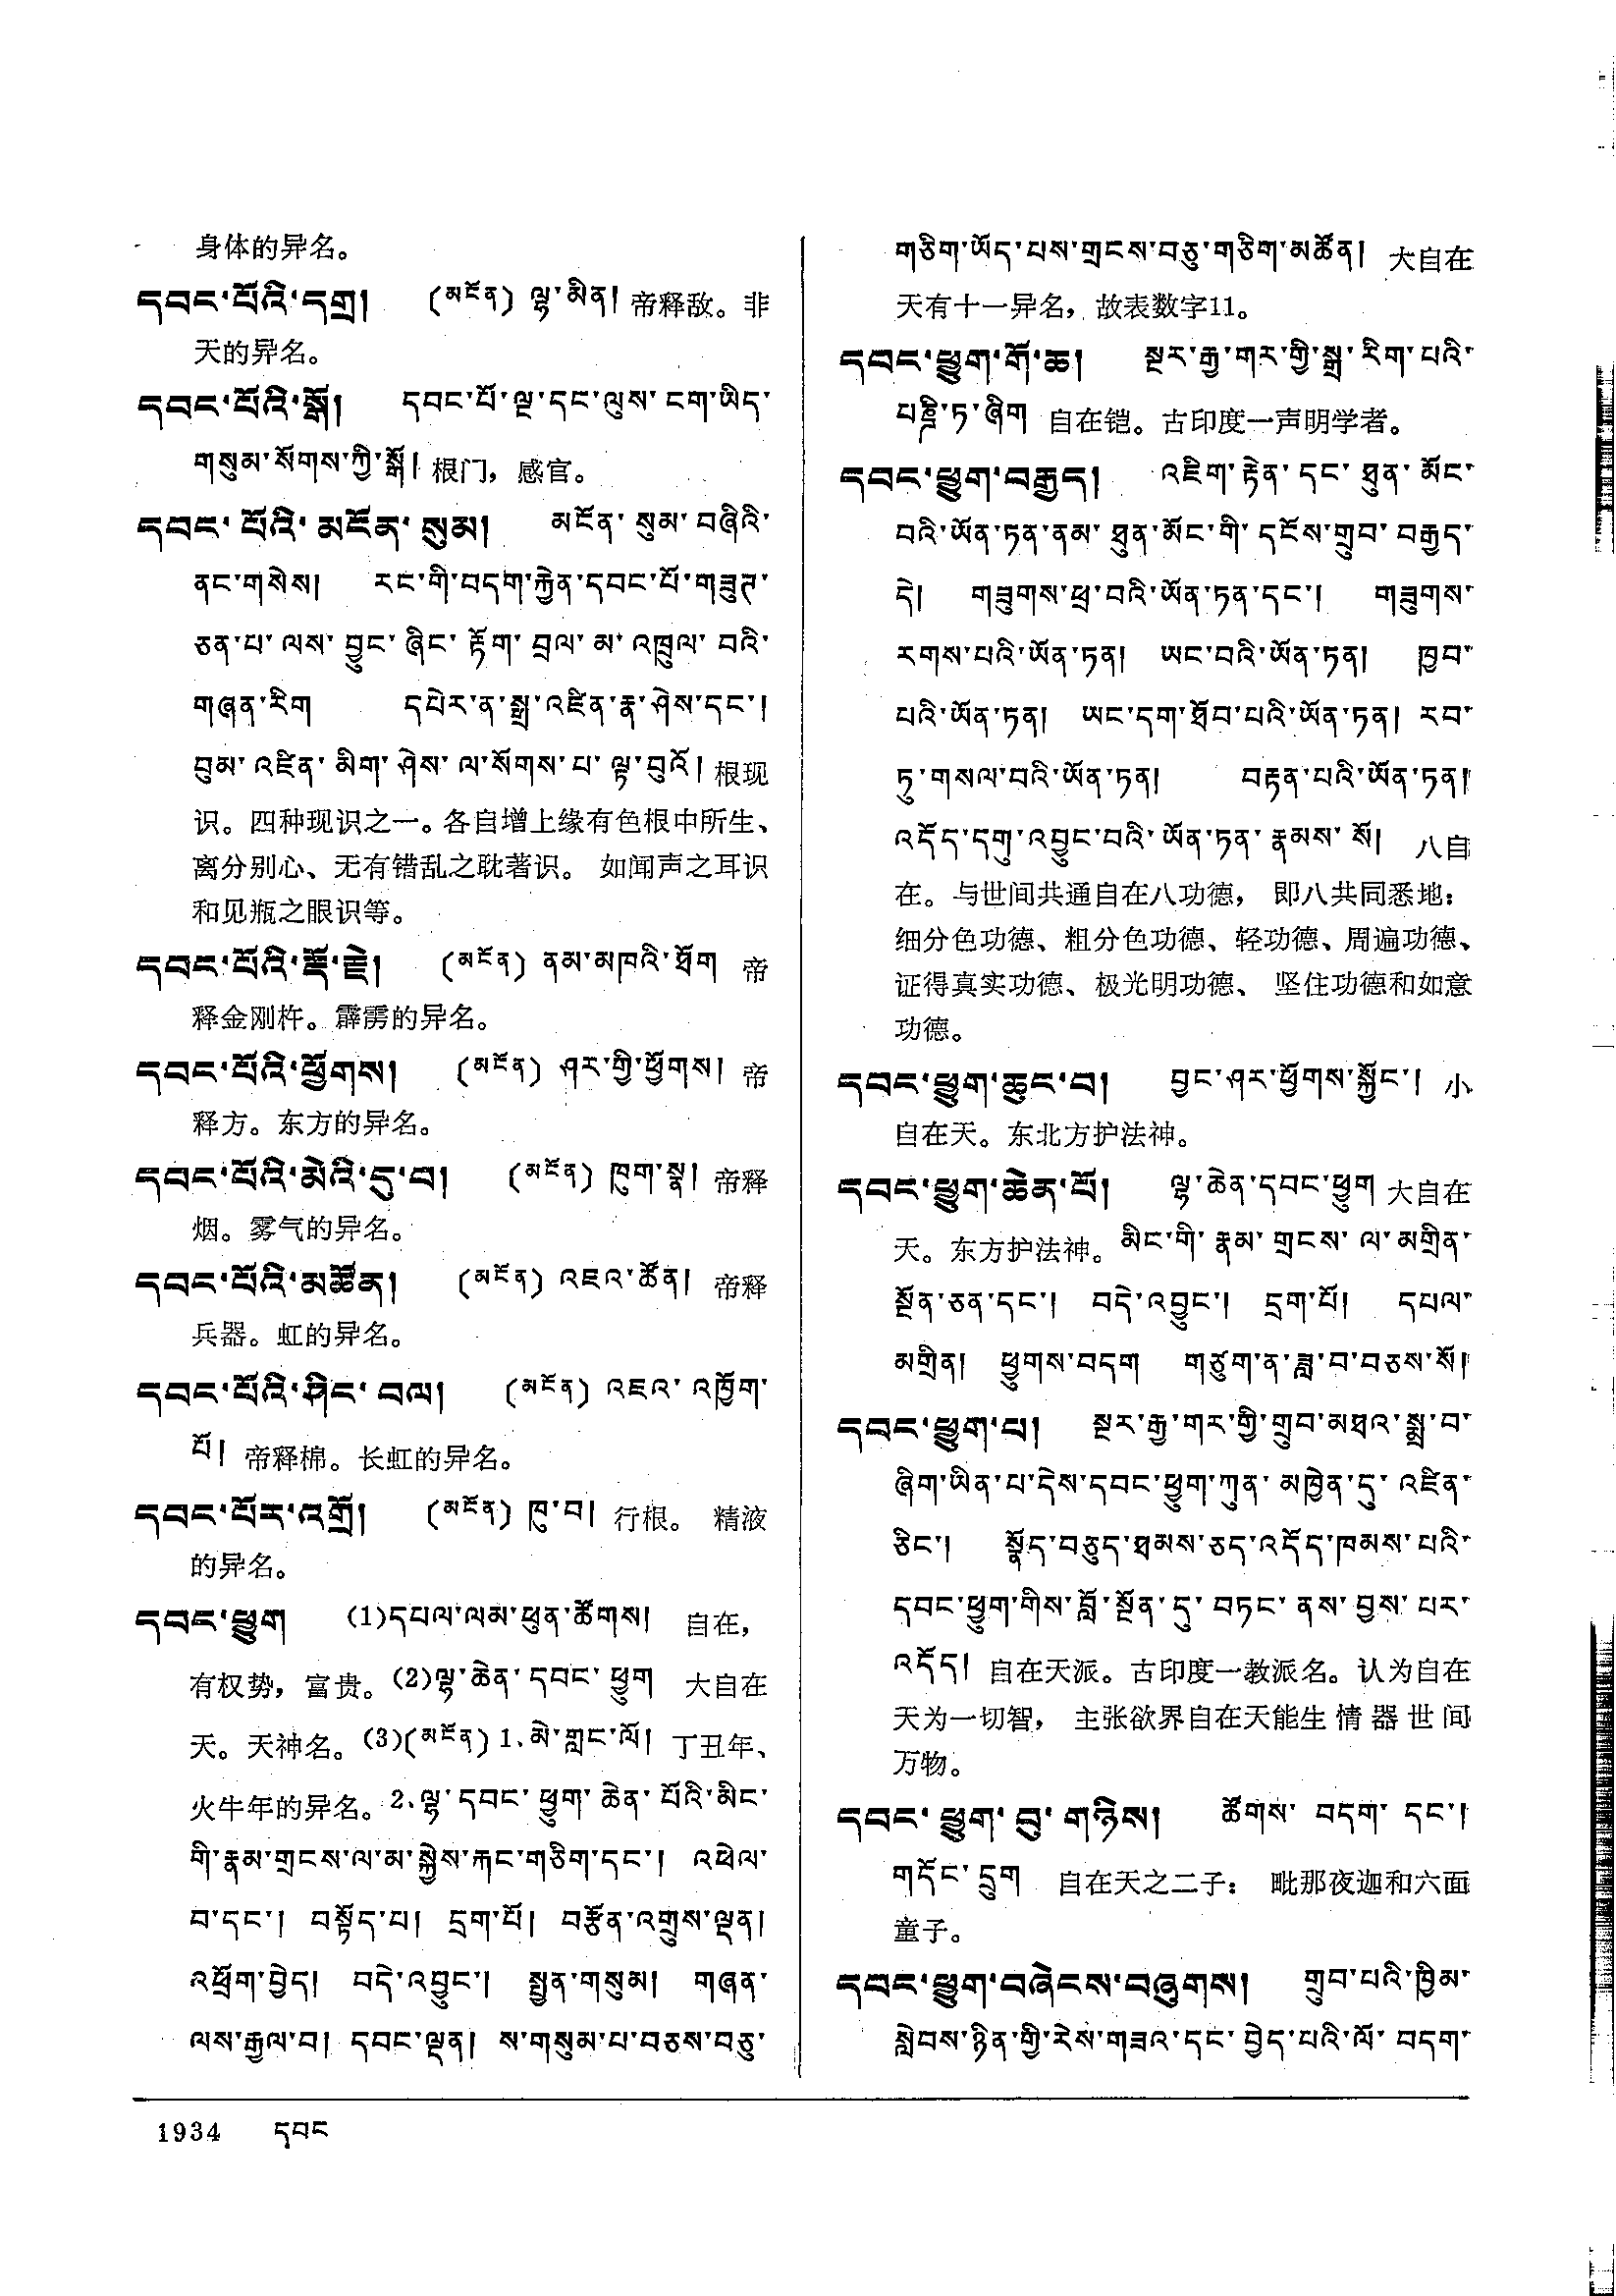 身体的异名。
དབང་པོའི་དགྲ། (མངོན) ལྷ་མིན། 帝释敌。非
天的异名。
དབང་པོའི་སྒོ། དབང་པོ་ལྔ་དང་ལུས་ངག་ཡིད་
གསུམ་སོགས་ཀྱི་སྒོ། 根门，感官。
དབང་པོའི་མངོན་སུམ། མངོན་སུམ་བཞིའི་
ནང་གསེས། རང་གི་བདག་རྐྱེན་དབང་པོ་གཟུཊ་
ཅན་པ་ལས་བྱུང་ཞིང་རྟོག་བྲལ་མ་འཁྲུལ་བའི་
གཞན་རིག དཔེར་ན་སྒྲ་འཛིན་རྣ་ཤེས་དང་།
བུམ་འཛིན་མིག་ཤེས་ལ་སོགས་པ་ལྟ་བུའོ། 根现
识。四种现识之一。各自增上缘有色根中所生、
离分别心、无有错乱之耽著识。如闻声之耳识
和见瓶之眼识等。
དབང་པོའི་རྡོ་རྗེ། (མངོན) ནམ་མཁའི་ཐོག 帝
释金刚杵。霹雳的异名。
དབང་པོའི་ཕྱོགས། (མངོན) ཤར་གྱི་ཕྱོགས། 帝
释方。东方的异名。
དབང་པོའི་མེའི་དུ་བ། (མངོན) ཁུག་སྣ། 帝释
烟。雾气的异名。
དབང་པོའི་མཚོན། (མངོན) འཇའ་ཚོན། 帝释
兵器。虹的异名。
དབང་པོའི་ཤིང་བལ། (མངོན) འཇའ་འཁྱོག་
པོ། 帝释棉。长虹的异名。
དབང་པོར་འགྲོ། (མངོན) ཁུ་བ། 行根。精液
的异名。
དབང་ཕྱུག (1)དཔལ་ལམ་ཕུན་ཚོགས། 自在，
有权势，富贵。(2)ལྷ་ཆེན་དབང་ཕྱུག 大自在
天。天神名。(3)(མངོན) 1、མེ་གླང་ལོ། 丁丑年、
火牛年的异名。2、ལྷ་དབང་ཕྱུག་ཆེན་པོའི་མིང་
གི་རྣམ་གྲངས་ལ་མ་སྐྱེས་རྐང་གཅིག་དང་། འཕེལ་
བ་དང་། བསྟོད་པ། དྲག་པོ། བརྩོན་འགྲུས་ལྡན།
འཕྲོག་བྱེད། བདེ་འབྱུང་། སྤྱན་གསུམ། གཞན་
ལས་རྒྱལ་བ། དབང་ལྡན། ས་གསུམ་པ་བཅས་བཅུ་
གཅིག་ཡོད་པས་གྲངས་བཅུ་གཅིག་མཚོན། 大自在
天有十一异名，故表数字11。
དབང་ཕྱུག་གོ་ཆ། སྔར་རྒྱ་གར་གྱི་སྒྲ་རིག་པའི་
པཎྜི་ཏ་ཞིག 自在铠。古印度一声明学者。
དབང་ཕྱུག་བརྒྱད། འཇིག་རྟེན་དང་ཐུན་མོང་
བའི་ཡོན་ཏན་ནམ་ཐུན་མོང་གི་དངོས་གྲུབ་བརྒྱད་
དེ། གཟུགས་ཕྲ་བའི་ཡོན་ཏན་དང་། གཟུགས་
རགས་པའི་ཡོན་ཏན། ཡང་བའི་ཡོན་ཏན། ཁྱབ་
པའི་ཡོན་ཏན། ཡང་དག་ཐོབ་པའི་ཡོན་ཏན། རབ་
ཏུ་གསལ་བའི་ཡོན་ཏན། བརྟན་པའི་ཡོན་ཏན།
འདོད་དགུ་འབྱུང་བའི་ཡོན་ཏན་རྣམས་སོ། 八自
在。与世间共通自在八功德，即八共同悉地：
细分色功德、粗分色功德、轻功德、周遍功德、
证得真实功德、极光明功德、坚住功德和如意
功德。
དབང་ཕྱུག་ཆུང་བ། བྱང་ཤར་ཕྱོགས་སྐྱོང་། 小
自在天。东北方护法神。
དབང་ཕྱུག་ཆེན་པོ། ལྷ་ཆེན་དབང་ཕྱུག 大自在
天。东方护法神。མིང་གི་རྣམ་གྲངས་ལ་མགྲིན་
སྔོན་ཅན་དང་། བདེ་འབྱུང་། དྲག་པོ། དཔལ་
མགྲིན། ཕྱུགས་བདག གཙུག་ན་ཟླ་བ་བཅས་སོ།
དབང་ཕྱུག་པ། སྔར་རྒྱ་གར་གྱི་གྲུབ་མཐའ་སྨྲ་བ་
ཞིག་ཡིན་པ་དེས་དབང་ཕྱུག་ཀུན་མཁྱེན་དུ་འཛིན་
ཅིང་། སྣོད་བཅུད་ཐམས་ཅད་འདོད་ཁམས་པའི་
དབང་ཕྱུག་གིས་བློ་སྔོན་དུ་བཏང་ནས་བྱས་པར་
འདོད། 自在天派。古印度一教派名。认为自在
天为一切智，主张欲界自在天能生情器世间
万物。
དབང་ཕྱུག་བུ་གཉིས། ཚོགས་བདག་དང་།
གདོང་དྲུག 自在天之二子：毗那夜迦和六面
童子。
དབང་ཕྱུག་བཞེངས་བཞུགས། གྲུབ་པའི་ཁྱིམ་
སླེབས་ཉིན་གྱི་རེས་གཟའ་དང་བྱེད་པའི་ལོ་བདག་
1934 དབང